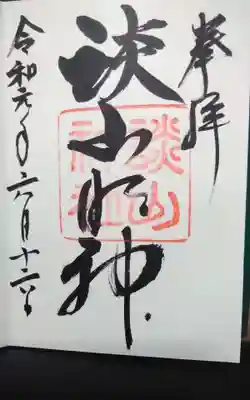 奉拝
談山明神
談山神社
令和元年六月十六日